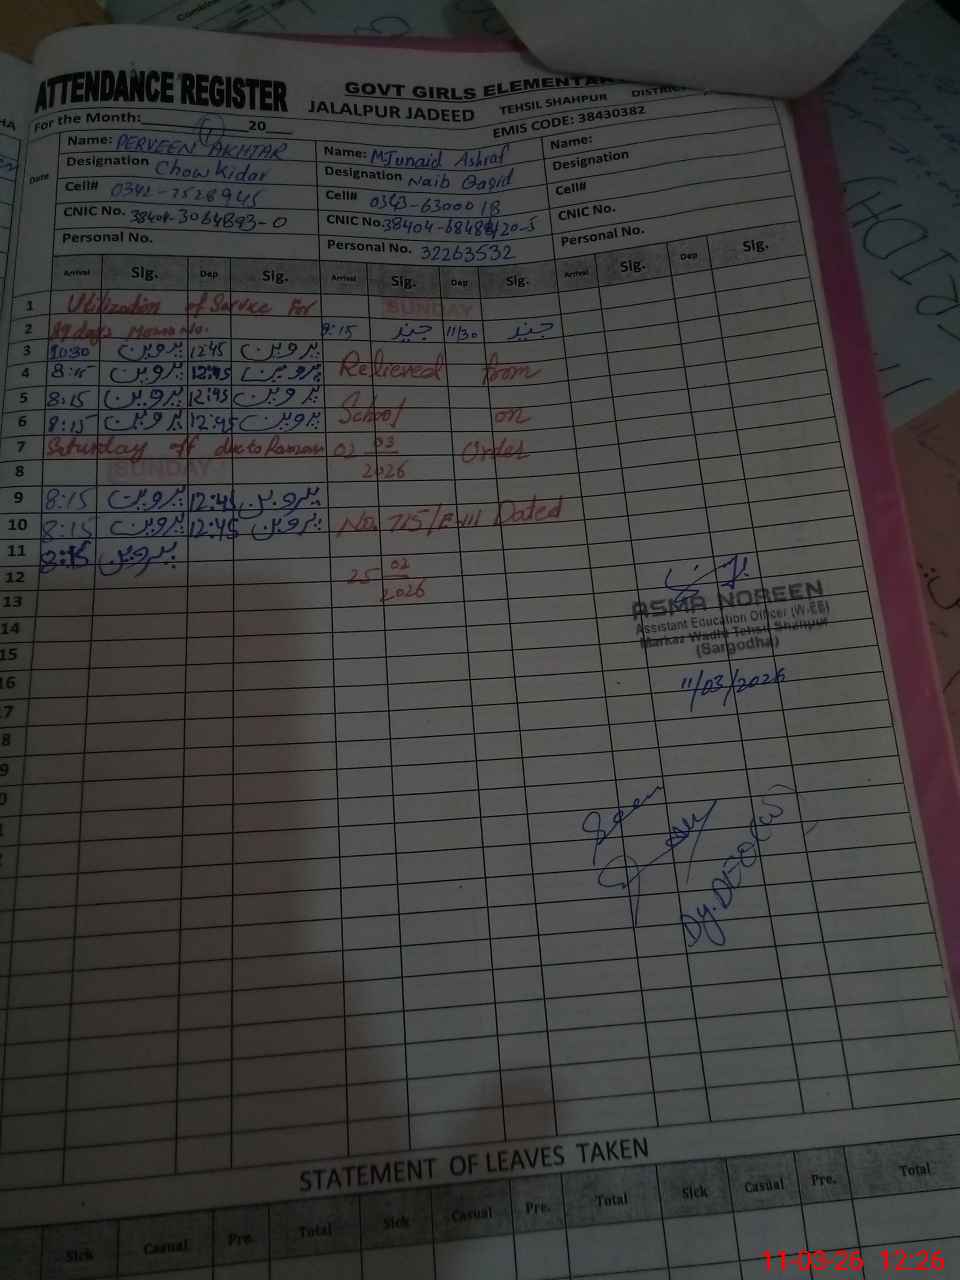 ATTENDANCE REGISTER
GOVT GIRLS ELEMENTAR
JALALPUR JADEED TEHSIL SHAHPUR DISTRIC
For the Month: 20 EMIS CODE: 38430382
Date
Name: PERVEEN AKHTAR
Designation Chowkidar
Cell# 0342-7528945
CNIC No. 38404-3064893-0
Personal No.
Name: M Junaid Ashraf
Designation Naib Qasid
Cell# 0343-6300018
CNIC No. 38404-
Personal No. 32263532
Name:
Designation
Cell#
CNIC No.
Personal No.
Arrival Sig. Dep Sig. Arrival Sig. Dep Sig. Arrival Sig. Dep Sig.
1 Utilization of Service For SUNDAY
2 89 days 8:15 جنید 11/30 جنید
3 10:30 پروین 12:45 پروین
4 8:15 پروین 12:45 پروین Relieved from
5 8:15 پروین 12:45 پروین
6 8:15 پروین 12:45 پروین School on
7 Saturday off due to Ramzan 02 03 2026 Order
8 SUNDAY
9 8:15 پروین 12:45 پروین
10 8:15 پروین 12:45 پروین No. 715/E-III Dated
11 8:15 پروین
12 25 02 2026
13
14
15
16
ASMA NOREEN
Assistant Education Officer (W-EE)
Markaz Wadhi Tehsil Shahpur
(Sargodha)
11/03/2026
Seen
Dy. DEO (W)
STATEMENT OF LEAVES TAKEN
Sick Casual Pre. Total Sick Casual Pre. Total Sick Casual Pre. Total
11-03-26 12:26